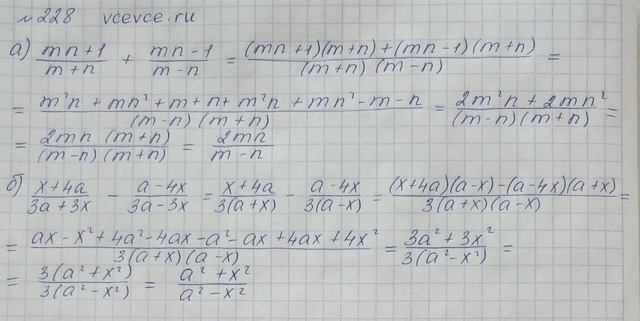 №228 vcevce.ru
а) (mn+1)/(m+n) + (mn-1)/(m-n) = ((mn+1)(m+n)+(mn-1)(m+n))/((m+n)(m-n)) =
= (m²n + mn² + m + n + m²n + mn² - m - n)/((m-n)(m+n)) = (2m²n + 2mn²)/((m-n)(m+n)) =
= (2mn(m+n))/((m-n)(m+n)) = 2mn/(m-n)
б) (x+4a)/(3a+3x) - (a-4x)/(3a-3x) = (x+4a)/(3(a+x)) - (a-4x)/(3(a-x)) = ((x+4a)(a-x)-(a-4x)(a+x))/(3(a+x)(a-x)) =
= (ax - x² + 4a² - 4ax - a² - ax + 4ax + 4x²)/(3(a+x)(a-x)) = (3a² + 3x²)/(3(a²-x²)) =
= (3(a²+x²))/(3(a²-x²)) = (a²+x²)/(a²-x²)